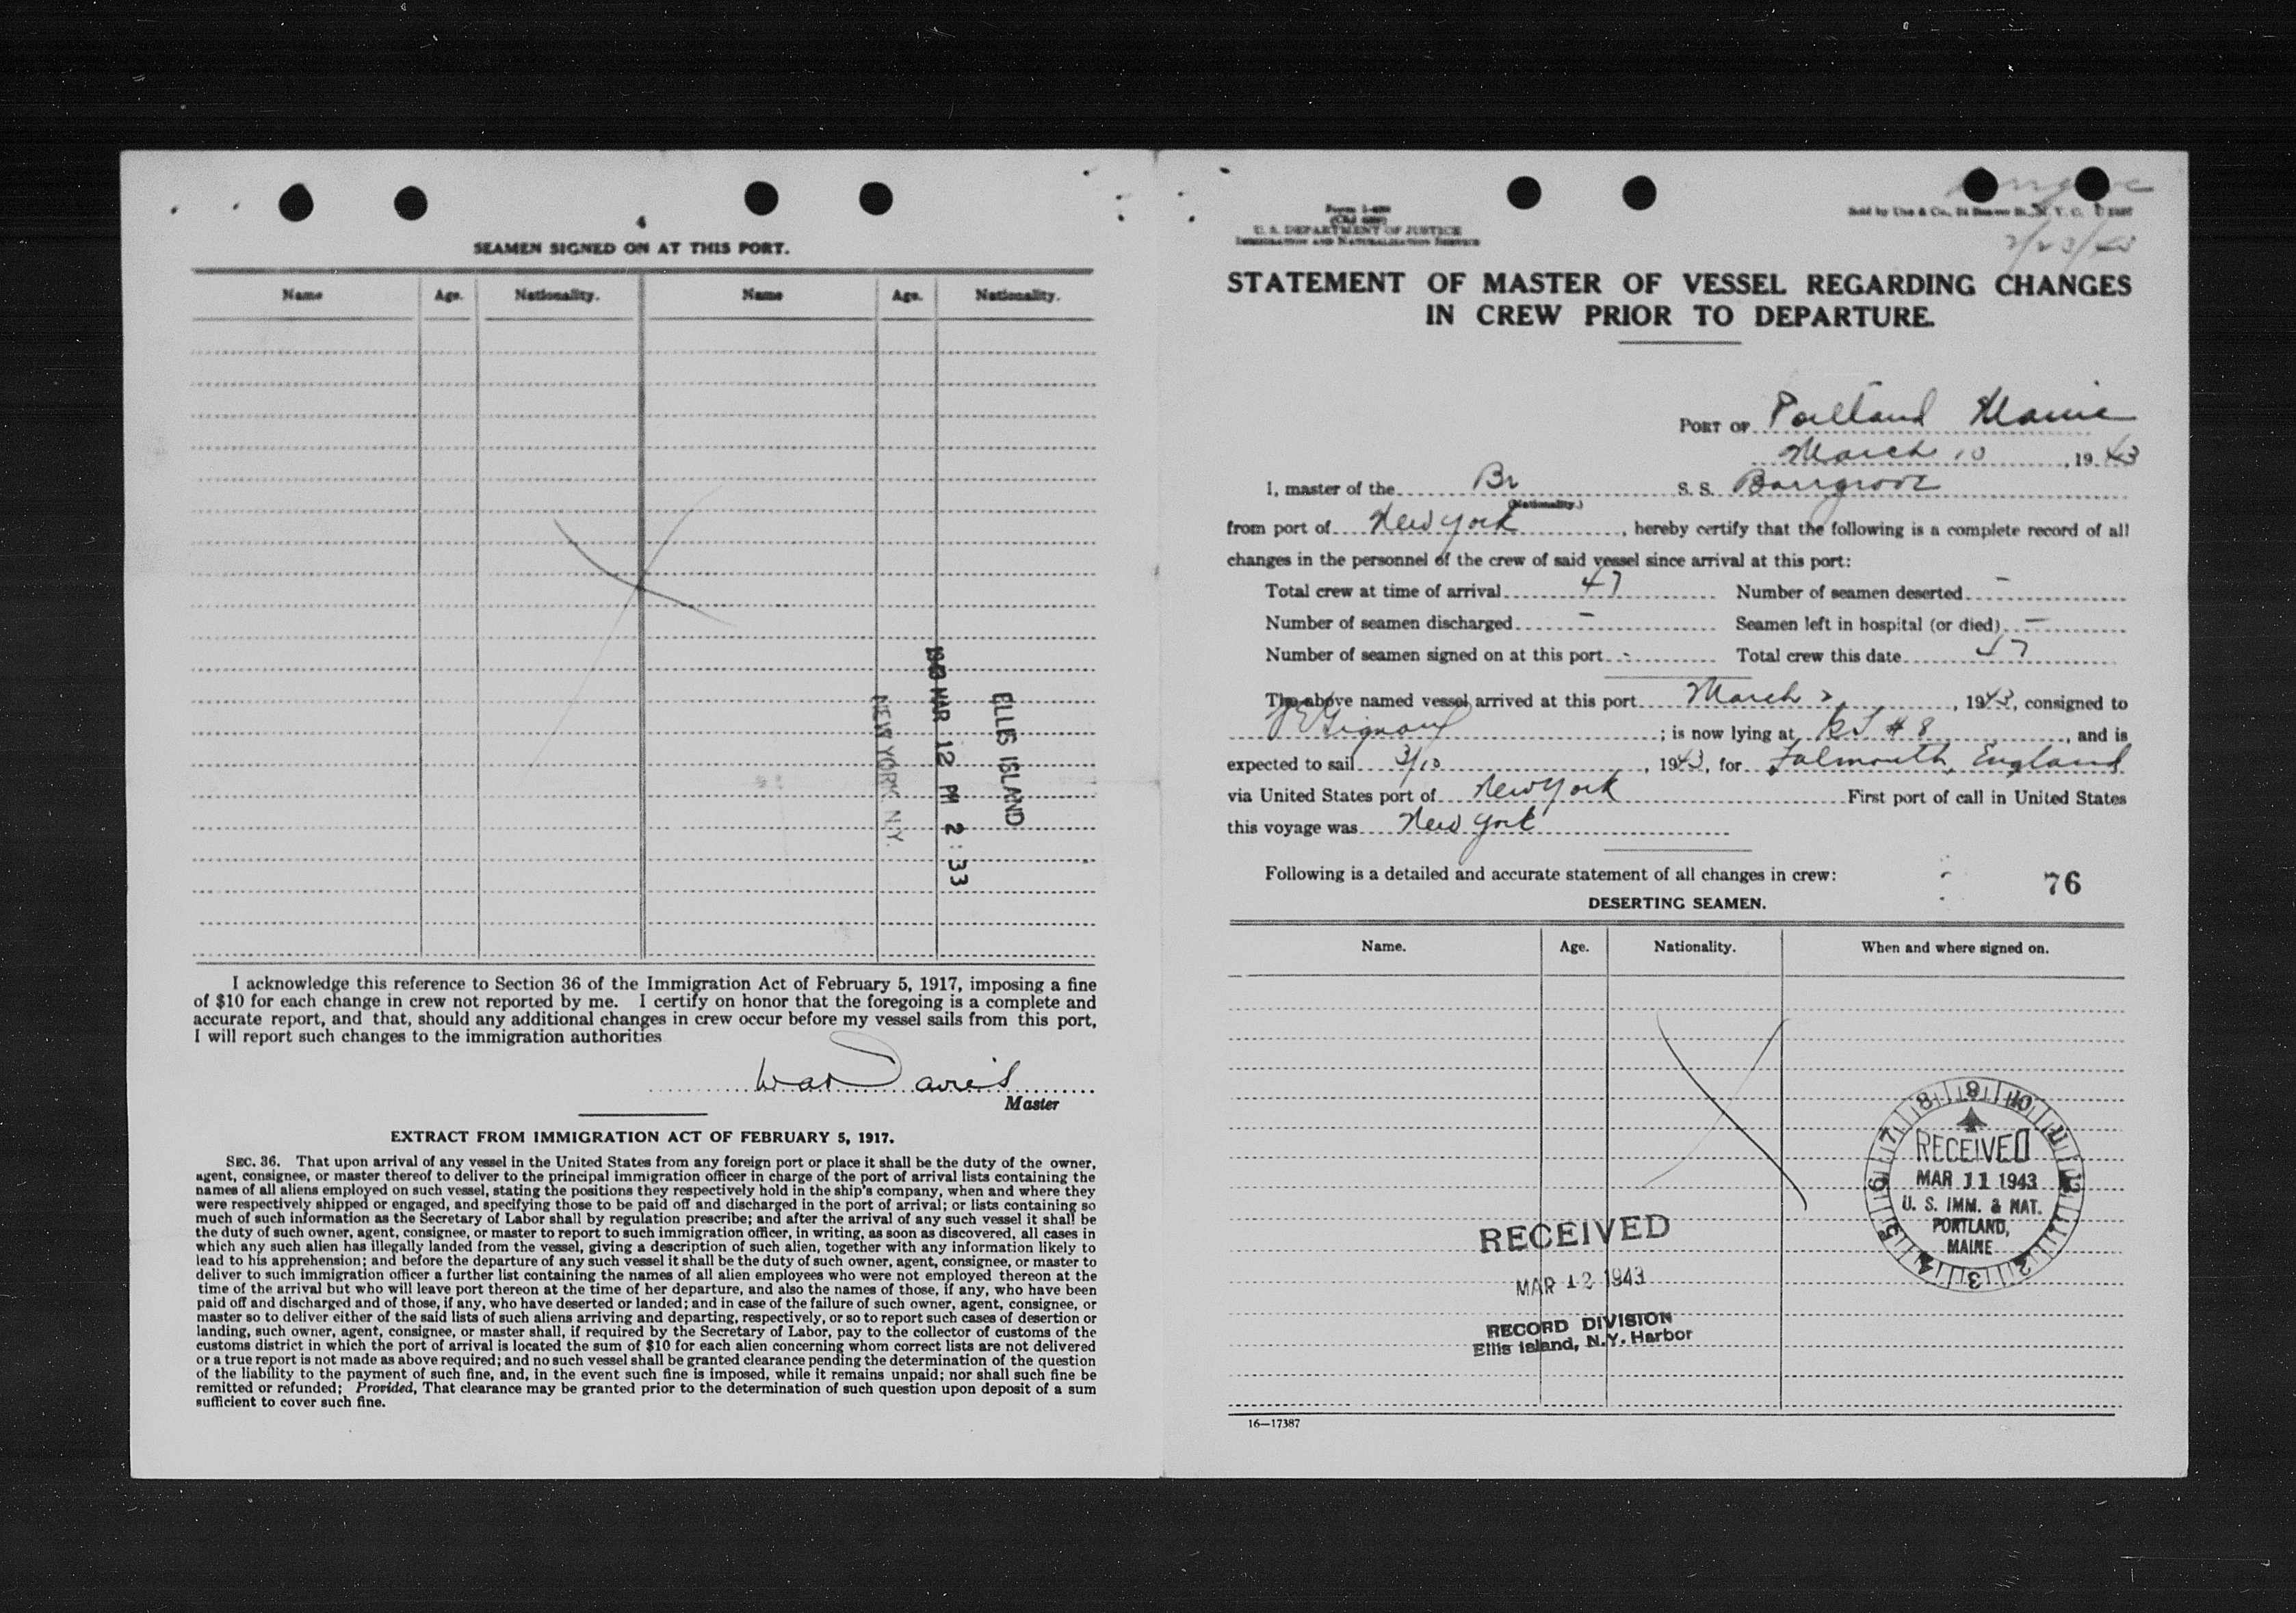 4
SEAMEN SIGNED ON AT THIS PORT.
Name Age. Nationality. Name Age. Nationality.
ELLIS ISLAND
1943 MAR 12 PM 2:33
NEW YORK, N.Y.
I acknowledge this reference to Section 36 of the Immigration Act of February 5, 1917, imposing a fine
of $10 for each change in crew not reported by me. I certify on honor that the foregoing is a complete and
accurate report, and that, should any additional changes in crew occur before my vessel sails from this port,
I will report such changes to the immigration authorities
Davies
Master
EXTRACT FROM IMMIGRATION ACT OF FEBRUARY 5, 1917.
SEC. 36. That upon arrival of any vessel in the United States from any foreign port or place it shall be the duty of the owner,
agent, consignee, or master thereof to deliver to the principal immigration officer in charge of the port of arrival lists containing the
names of all aliens employed on such vessel, stating the positions they respectively hold in the ship's company, when and where they
were respectively shipped or engaged, and specifying those to be paid off and discharged in the port of arrival; or lists containing so
much of such information as the Secretary of Labor shall by regulation prescribe; and after the arrival of any such vessel it shall be
the duty of such owner, agent, consignee, or master to report to such immigration officer, in writing, as soon as discovered, all cases in
which any such alien has illegally landed from the vessel, giving a description of such alien, together with any information likely to
lead to his apprehension; and before the departure of any such vessel it shall be the duty of such owner, agent, consignee, or master to
deliver to such immigration officer a further list containing the names of all alien employees who were not employed thereon at the
time of the arrival but who will leave port thereon at the time of her departure, and also the names of those, if any, who have been
paid off and discharged and of those, if any, who have deserted or landed; and in case of the failure of such owner, agent, consignee, or
master so to deliver either of the said lists of such aliens arriving and departing, respectively, or so to report such cases of desertion or
landing, such owner, agent, consignee, or master shall, if required by the Secretary of Labor, pay to the collector of customs of the
customs district in which the port of arrival is located the sum of $10 for each alien concerning whom correct lists are not delivered
or a true report is not made as above required; and no such vessel shall be granted clearance pending the determination of the question
of the liability to the payment of such fine, and, in the event such fine is imposed, while it remains unpaid; nor shall such fine be
remitted or refunded; Provided, That clearance may be granted prior to the determination of such question upon deposit of a sum
sufficient to cover such fine.
U. S. DEPARTMENT OF JUSTICE
IMMIGRATION AND NATURALIZATION SERVICE
STATEMENT OF MASTER OF VESSEL REGARDING CHANGES
IN CREW PRIOR TO DEPARTURE.
PORT OF Portland Maine
March 10, 1943
I, master of the Br S. S. Barrgrove
(Nationality.)
from port of New York, hereby certify that the following is a complete record of all
changes in the personnel of the crew of said vessel since arrival at this port:
Total crew at time of arrival 47 Number of seamen deserted -
Number of seamen discharged - Seamen left in hospital (or died) -
Number of seamen signed on at this port - Total crew this date 47
The above named vessel arrived at this port March 2, 1943, consigned to
; is now lying at # 8, and is
expected to sail 3/10, 1943, for Falmouth, England
via United States port of New York First port of call in United States
this voyage was New York
Following is a detailed and accurate statement of all changes in crew: 76
DESERTING SEAMEN.
Name. Age. Nationality. When and where signed on.
8 9 10 11 12 1 2 3 4 5 6 7
RECEIVED
MAR 11 1943
U. S. IMM. & NAT.
PORTLAND,
MAINE
RECEIVED
MAR 12 1943
RECORD DIVISION
Ellis Island, N.Y. Harbor
16—17387